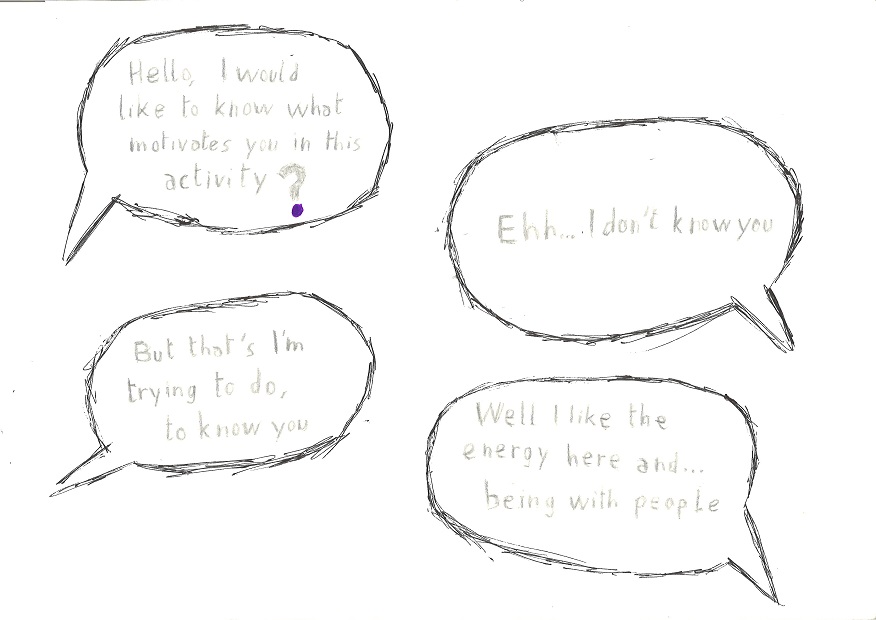 Hello, I would
like to know what
motivates you in this
activity ?
Ehh... I don't know you
But that's I'm
trying to do,
to know you
Well I like the
energy here and...
being with people